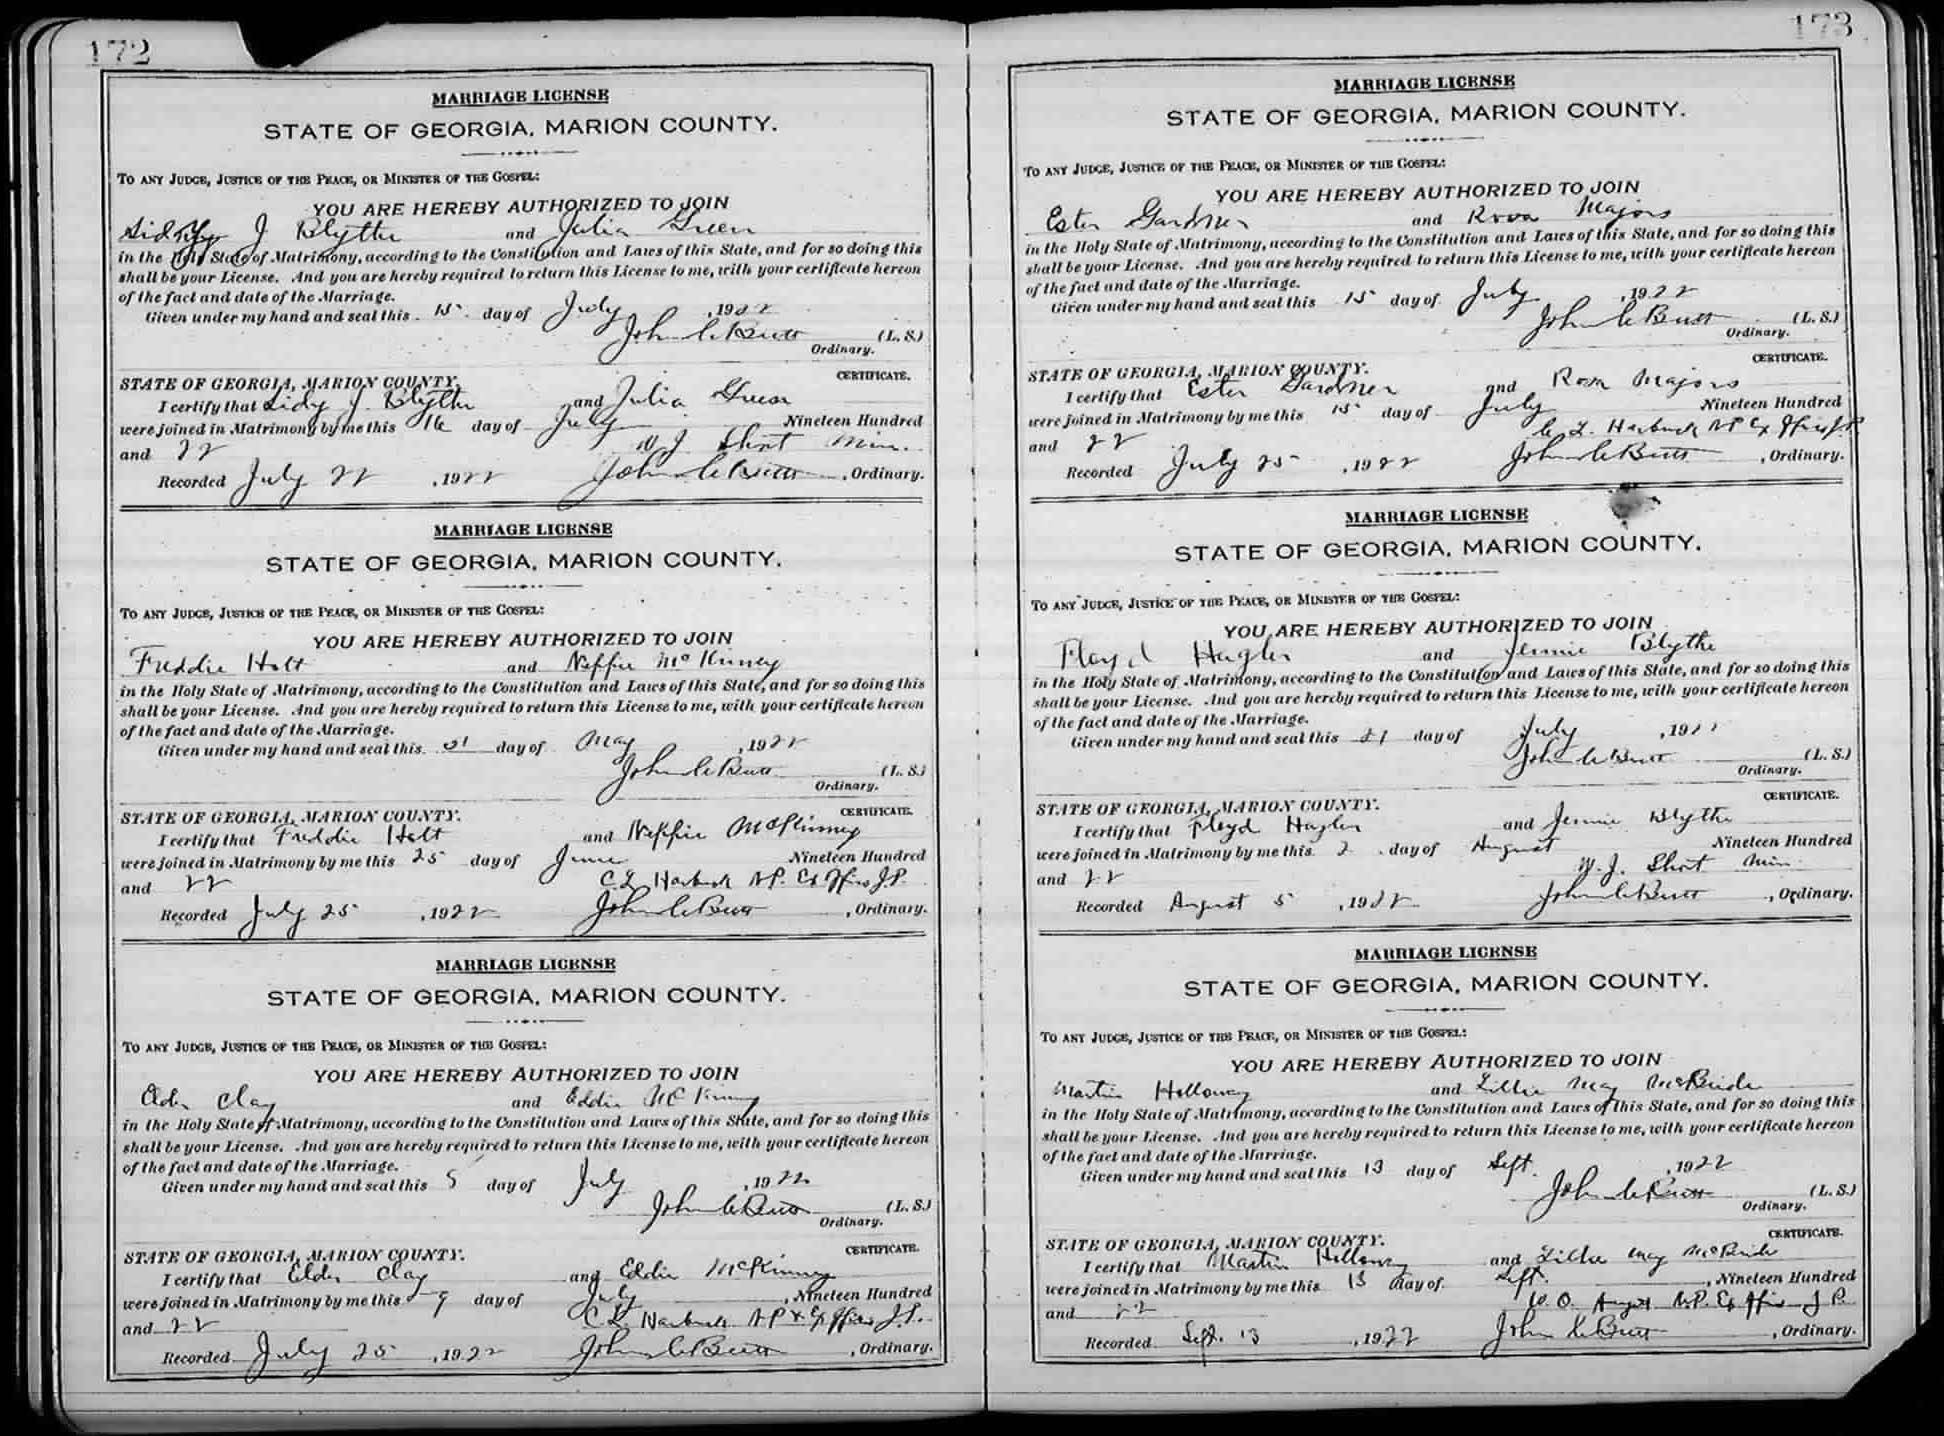 172
MARRIAGE LICENSE
STATE OF GEORGIA, MARION COUNTY.
TO ANY JUDGE, JUSTICE OF THE PEACE, OR MINISTER OF THE GOSPEL:
YOU ARE HEREBY AUTHORIZED TO JOIN
Sidney J Blythe and Julia Green
in the Holy State of Matrimony, according to the Constitution and Laws of this State, and for so doing this
shall be your License. And you are hereby required to return this License to me, with your certificate hereon
of the fact and date of the Marriage.
Given under my hand and seal this 15 day of July, 1922
John C Butt (L. S.)
Ordinary.
CERTIFICATE.
STATE OF GEORGIA, MARION COUNTY.
I certify that Sidy J. Blythe and Julia Green
were joined in Matrimony by me this 16 day of July Nineteen Hundred
and 22 W J Short Min.
Recorded July 22, 1922 John C Butt, Ordinary.
MARRIAGE LICENSE
STATE OF GEORGIA, MARION COUNTY.
TO ANY JUDGE, JUSTICE OF THE PEACE, OR MINISTER OF THE GOSPEL:
YOU ARE HEREBY AUTHORIZED TO JOIN
Freddie Holt and Neffie McKinney
in the Holy State of Matrimony, according to the Constitution and Laws of this State, and for so doing this
shall be your License. And you are hereby required to return this License to me, with your certificate hereon
of the fact and date of the Marriage.
Given under my hand and seal this 31 day of May, 1922
John C Butt (L. S.)
Ordinary.
CERTIFICATE.
STATE OF GEORGIA, MARION COUNTY.
I certify that Freddie Holt and Neffie McKinney
were joined in Matrimony by me this 25 day of June Nineteen Hundred
and 22 C. L. Harbuck N.P. Ex Officio J.P.
Recorded July 25, 1922 John C Butt, Ordinary.
MARRIAGE LICENSE
STATE OF GEORGIA, MARION COUNTY.
TO ANY JUDGE, JUSTICE OF THE PEACE, OR MINISTER OF THE GOSPEL:
YOU ARE HEREBY AUTHORIZED TO JOIN
Elder Clay and Eddie McKinney
in the Holy State of Matrimony, according to the Constitution and Laws of this State, and for so doing this
shall be your License. And you are hereby required to return this License to me, with your certificate hereon
of the fact and date of the Marriage.
Given under my hand and seal this 5 day of July, 1922
John C Butt (L. S.)
Ordinary.
CERTIFICATE.
STATE OF GEORGIA, MARION COUNTY.
I certify that Elder Clay and Eddie McKinney
were joined in Matrimony by me this 9 day of July, Nineteen Hundred
and 22 C L. Harbuck N P & Ex Officio J.P.
Recorded July 25, 1922 John C Butt, Ordinary.
173
MARRIAGE LICENSE
STATE OF GEORGIA, MARION COUNTY.
TO ANY JUDGE, JUSTICE OF THE PEACE, OR MINISTER OF THE GOSPEL:
YOU ARE HEREBY AUTHORIZED TO JOIN
Ester Gardner and Rosa Majors
in the Holy State of Matrimony, according to the Constitution and Laws of this State, and for so doing this
shall be your License. And you are hereby required to return this License to me, with your certificate hereon
of the fact and date of the Marriage.
Given under my hand and seal this 15 day of July, 1922
John C Butt (L. S.)
Ordinary.
CERTIFICATE.
STATE OF GEORGIA, MARION COUNTY.
I certify that Ester Gardner and Rosa Majors
were joined in Matrimony by me this 15 day of July Nineteen Hundred
and 22 C. L. Harbuck N P Ex Officio J.P.
Recorded July 25, 1922 John C Butt, Ordinary.
MARRIAGE LICENSE
STATE OF GEORGIA, MARION COUNTY.
TO ANY JUDGE, JUSTICE OF THE PEACE, OR MINISTER OF THE GOSPEL:
YOU ARE HEREBY AUTHORIZED TO JOIN
Floyd Hagler and Jennie Blythe
in the Holy State of Matrimony, according to the Constitution and Laws of this State, and for so doing this
shall be your License. And you are hereby required to return this License to me, with your certificate hereon
of the fact and date of the Marriage.
Given under my hand and seal this 21 day of July, 1922
John C Butt (L. S.)
Ordinary.
CERTIFICATE.
STATE OF GEORGIA, MARION COUNTY.
I certify that Floyd Hagler and Jennie Blythe
were joined in Matrimony by me this 2 day of August Nineteen Hundred
and 22 W. J. Short Min.
Recorded August 5, 1922 John C Butt, Ordinary.
MARRIAGE LICENSE
STATE OF GEORGIA, MARION COUNTY.
TO ANY JUDGE, JUSTICE OF THE PEACE, OR MINISTER OF THE GOSPEL:
YOU ARE HEREBY AUTHORIZED TO JOIN
Martin Holloway and Lillie May McBride
in the Holy State of Matrimony, according to the Constitution and Laws of this State, and for so doing this
shall be your License. And you are hereby required to return this License to me, with your certificate hereon
of the fact and date of the Marriage.
Given under my hand and seal this 13 day of Sept., 1922
John C Butt (L. S.)
Ordinary.
CERTIFICATE.
STATE OF GEORGIA, MARION COUNTY.
I certify that Martin Holloway and Lillie May McBride
were joined in Matrimony by me this 13 day of Sept., Nineteen Hundred
and 22 W. O. N.P. Ex Officio J P.
Recorded Sept. 13, 1922 John C Butt, Ordinary.